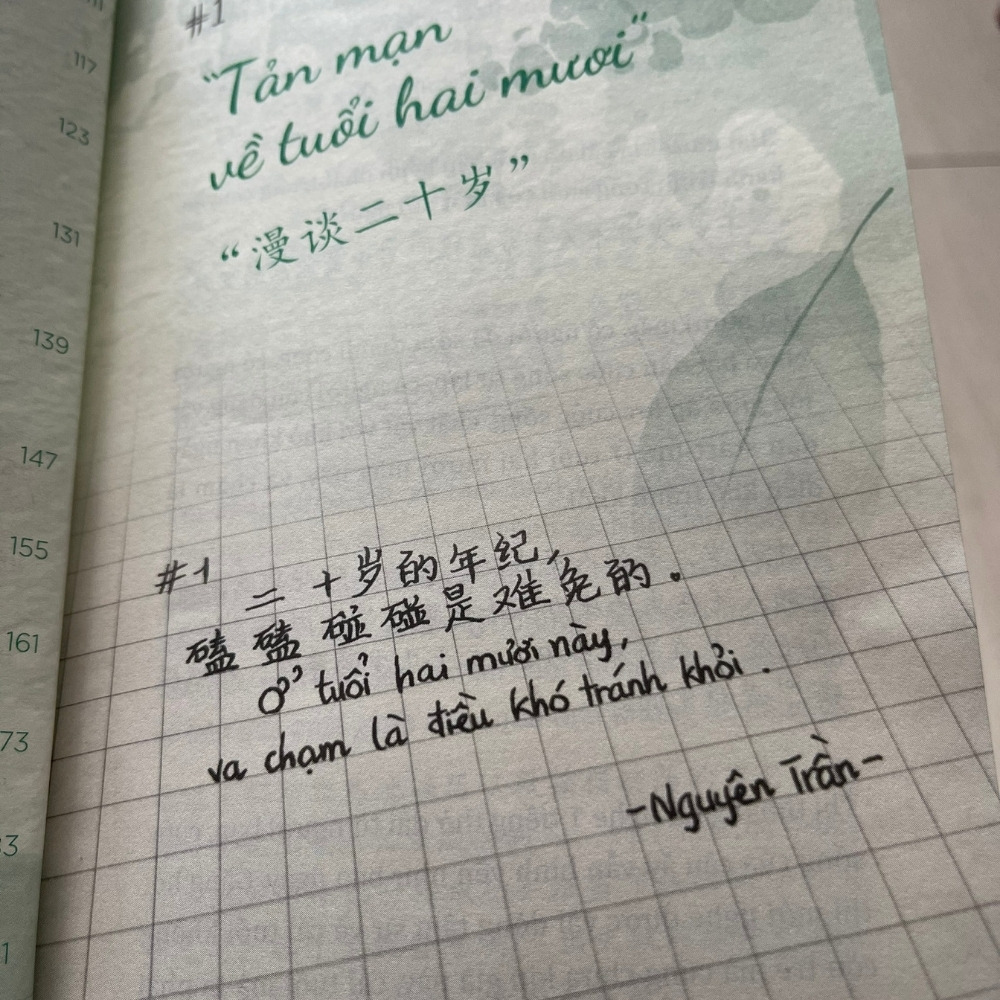 117
123
131
139
147
155
161
73
#1
"Tản mạn
về tuổi hai mươi"
“漫谈二十岁”
#1 二十岁的年纪,
磕磕碰碰是难免的.
Ở tuổi hai mươi này,
va chạm là điều khó tránh khỏi.
-Nguyên Trần-